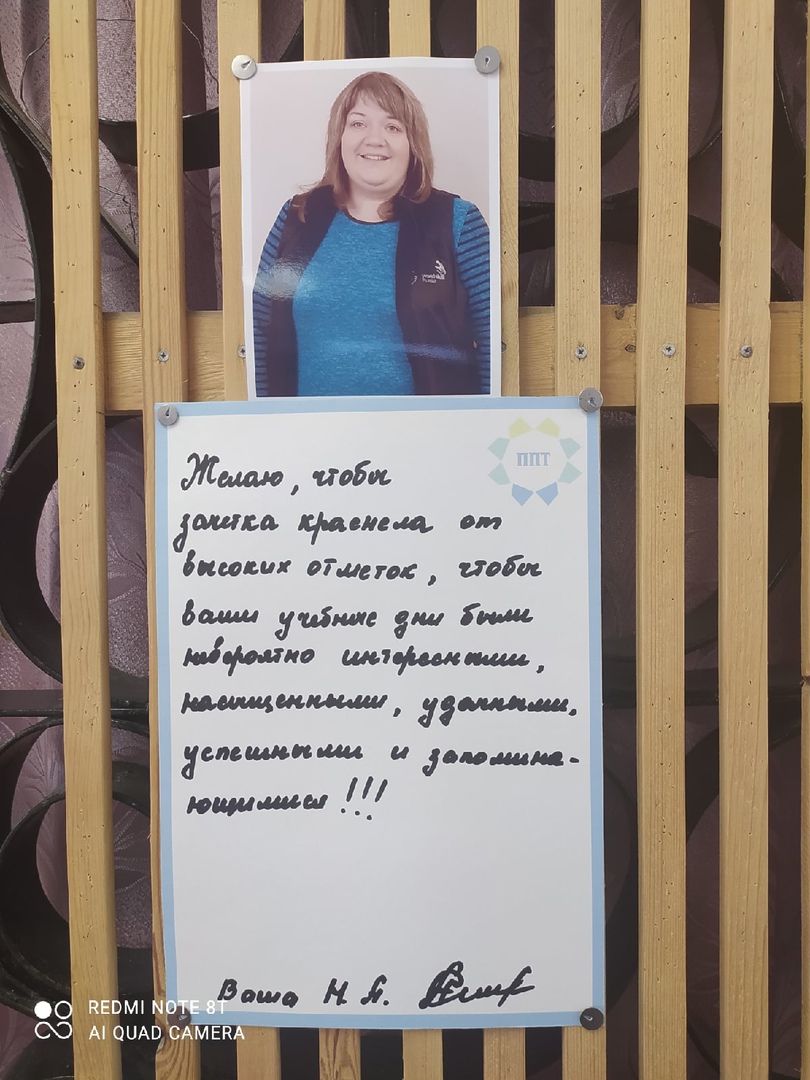 ППТ
Желаю, чтобы
зачетка краснела от
высоких отметок, чтобы
ваши учебные дни были
невероятно интересными,
насыщенными, удачными,
успешными и запомина-
ющимися!!!
Ваша Н. А.
REDMI NOTE 8T
AI QUAD CAMERA